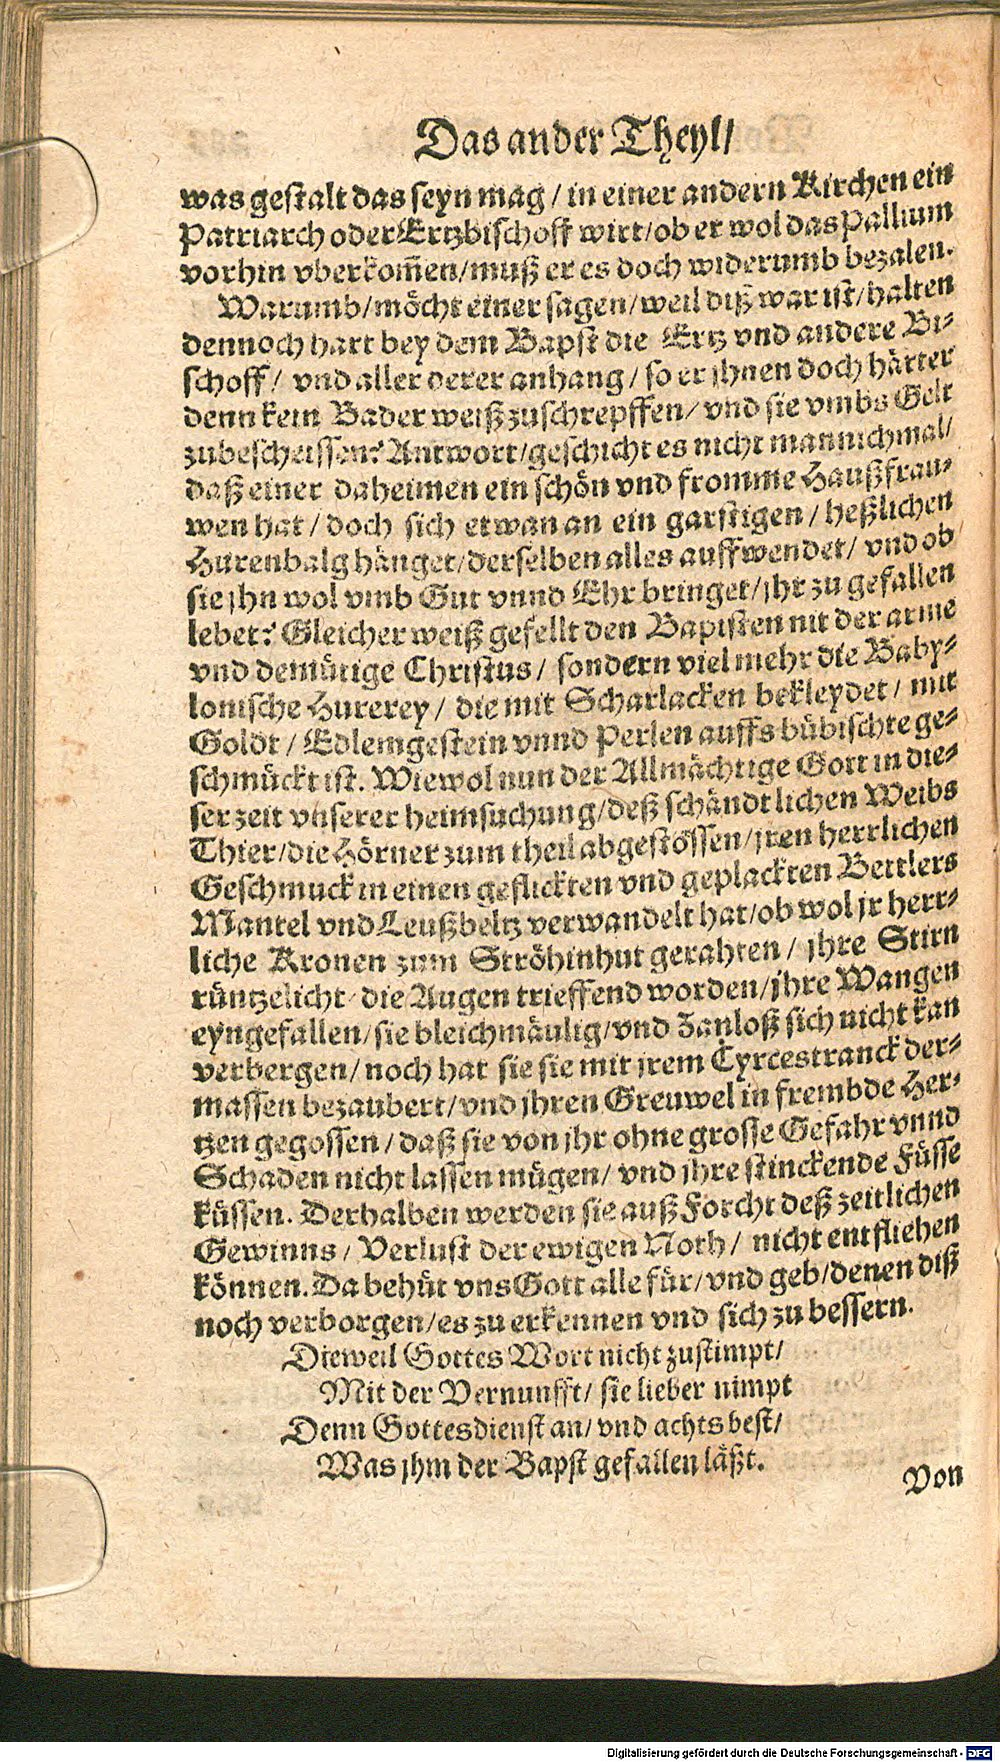 Das ander Theyl/
was gestalt das seyn mag / in einer andern Kirchen ein
Patriarch oder Ertzbischoff wirt/ob er wol das Pallium
vorhin vberkom̃en/muß er es doch widerumb bezalen.
Warumb/möcht einer sagen/weil diß war ist/halten
dennoch hart bey dem Bapst die Ertz vnd andere Bi-
schoff/ vnd aller derer anhang / so er jhnen doch härter
denn kein Bader weiß zuschrepffen/ vnd sie vmbs Gelt
zubescheissen? Antwort/geschicht es nicht mannichmal/
daß einer daheimen ein schön vnd fromme Haußfrau-
wen hat / doch sich etwan an ein garstigen / heßlichen
Hurenbalg hänget/derselben alles auffwendet/ vnd ob
sie jhn wol vmb Gut vnnd Ehr bringet/jhr zu gefallen
lebet? Gleicher weiß gefellt den Bapisten nit der arme
vnd demütige Christus / sondern viel mehr die Baby-
lonische Hurerey / die mit Scharlacken bekleydet / mit
Goldt / Edlemgestein vnnd Perlen auffs bübischte ge-
schmückt ist. Wiewol nun der Allmächtige Gott in die-
ser zeit vnserer heimsuchung/deß schändtlichen Weibs
Thier/die Hörner zum theil abgestossen/jren herrlichen
Geschmuck in einen geflickten vnd geplackten Bettlers
Mantel vnd Leußbeltz verwandelt hat/ob wol jr herr-
liche Kronen zum Ströhinhut gerahten / jhre Stirn
rüntzelicht/ die Augen trieffend worden/jhre Wangen
eyngefallen/sie bleichmäulig/vnd Zanloß sich nicht kan
verbergen/ noch hat sie sie mit jrem Cyrcestranck der-
massen bezaubert/vnd jhren Greuwel in frembde Her-
tzen gegossen / daß sie von jhr ohne grosse Gefahr vnnd
Schaden nicht lassen mügen/ vnd jhre stinckende Füsse
küssen. Derhalben werden sie auß Forcht deß zeitlichen
Gewinns / Verlust der ewigen Noth / nicht entfliehen
können. Da behüt vns Gott alle für/vnd geb/denen diß
noch verborgen/es zu erkennen vnd sich zu bessern.
Dieweil Gottes Wort nicht zustimpt/
Mit der Vernunfft/ sie lieber nimpt
Denn Gottesdienst an/ vnd achts best/
Was jhm der Bapst gefallen läßt.
Von
Digitalisierung gefördert durch die Deutsche Forschungsgemeinschaft - DFG